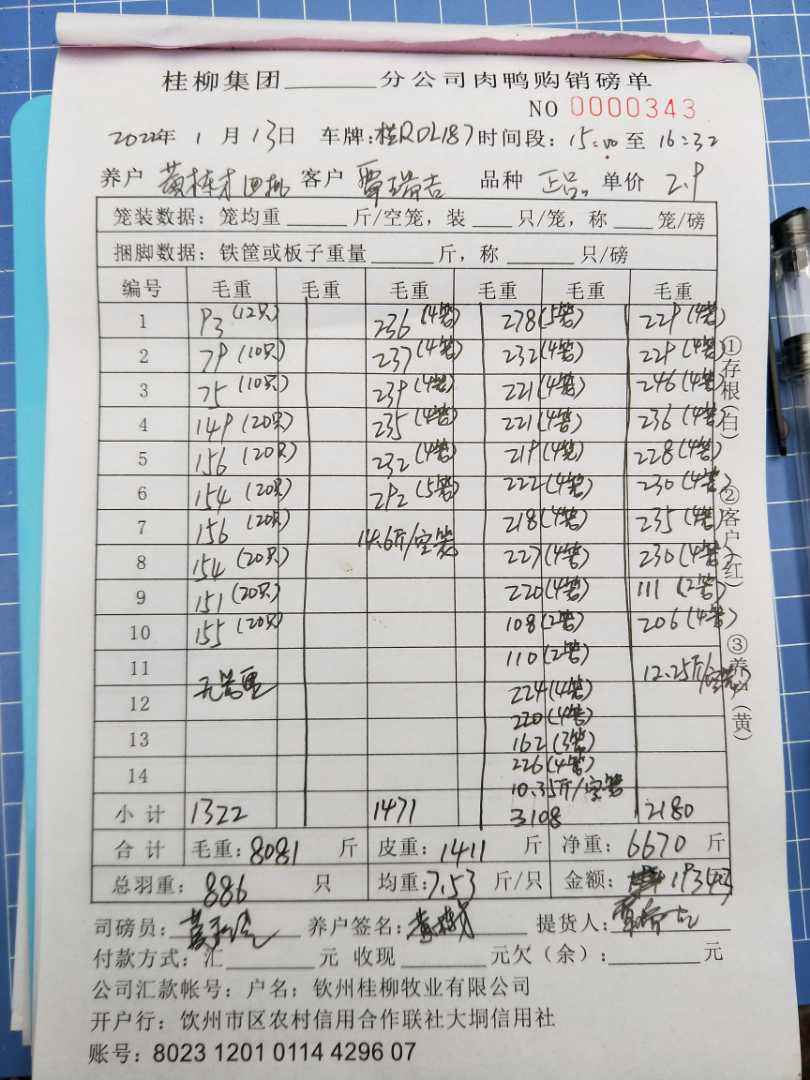 桂柳集团______分公司肉鸭购销磅单
NO 0000343
2022年 1 月 13日 车牌:桂RDL187 时间段:15:00 至 16:32
养户 客户 覃瑞吉 品种 正品 单价 2.9
笼装数据:笼均重______斤/空笼,装____只/笼,称____笼/磅
捆脚数据:铁筐或板子重量______斤,称______只/磅
编号 毛重 毛重 毛重 毛重 毛重
1 93(12只) 236(4笼) 278(5笼) 229(4笼)
2 79(10只) 237(4笼) 232(4笼) 229(4笼)
3 75(10只) 239(4笼) 221(4笼) 246(4笼)
4 149(20只) 235(4笼) 221(4笼) 236(4笼)
5 156(20只) 232(4笼) 219(4笼) 228(4笼)
6 154(20只) 292(5笼) 222(4笼) 230(4笼)
7 156(20只) 14.6斤/空笼 218(4笼) 235(4笼)
8 154(20只) 227(4笼) 230(4笼)
9 151(20只) 220(4笼) 111(2笼)
10 155(20只) 108(2笼) 206(4笼)
11 无笼重 110(2笼) 12.25斤/空笼
12 224(4笼)
220(4笼)
13 162(3笼)
14 226(4笼)
10.35斤/空笼
小计 1322 1471 3108 2180
合计 毛重:8081 斤 皮重:1411 斤 净重:6670 斤
总羽重:886 只 均重:7.53 斤/只 金额:19343
司磅员: 养户签名: 提货人:
付款方式:汇______元 收现______元欠(余):______元
公司汇款帐号:户名:钦州桂柳牧业有限公司
开户行:钦州市区农村信用合作联社大垌信用社
账号:8023 1201 0114 4296 07
①存根(白) ②客户(红) ③养户(黄)